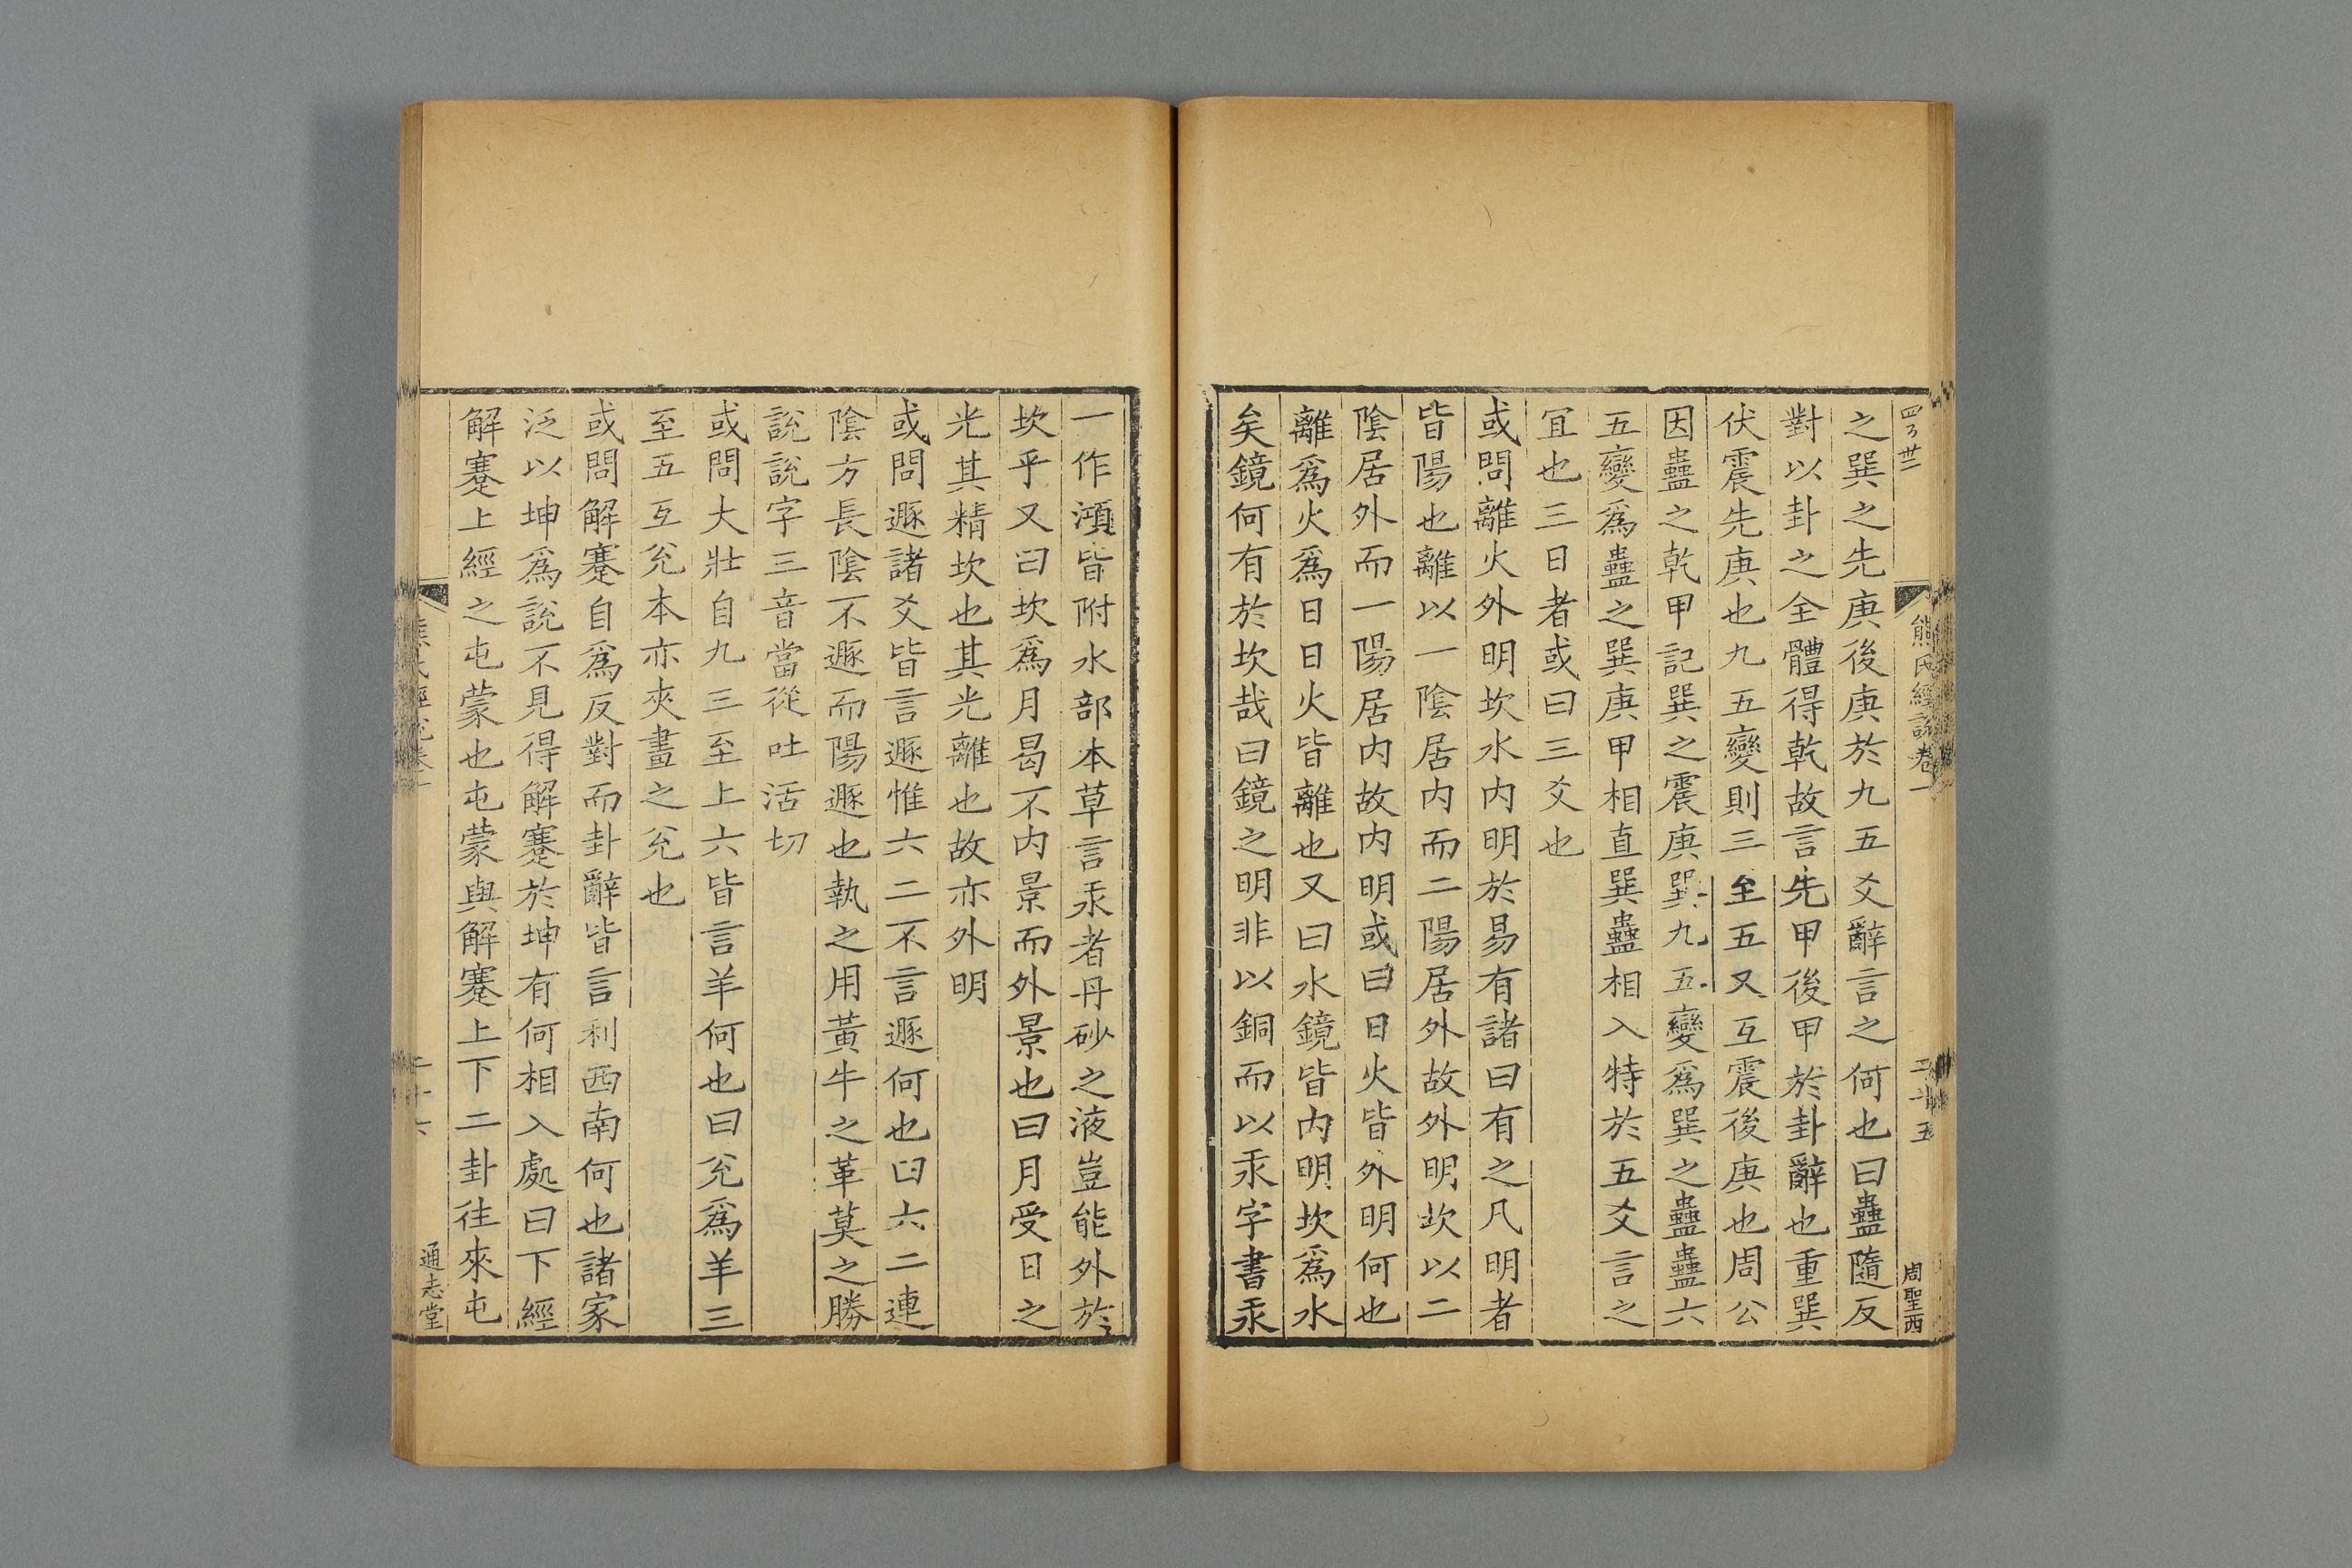 四百廿二
熊氏經說卷一
二十五
周聖西
之巽之先庚後庚於九五爻辭言之何也曰蠱隨反
對以卦之全體得乾故言先甲後甲於卦辭也重巽
伏震先庚也九五變則三至五又互震後庚也周公
因蠱之乾甲記巽之震庚巽九五變爲巽之蠱蠱六
五變爲蠱之巽庚甲相直巽蠱相入特於五爻言之
冝也三日者或曰三爻也
或問離火外明坎水内明於易有諸曰有之凡明者
皆陽也離以一陰居内而二陽居外故外明坎以二
陰居外而一陽居内故内明或曰日火皆外明何也
離爲火爲日日火皆離也又曰水鏡皆内明坎爲水
矣鏡何有於坎哉曰鏡之明非以銅而以汞字書汞
一作澒皆附水部本草言汞者丹砂之液豈能外於
坎乎又曰坎爲月曷不内景而外景也曰月受日之
光其精坎也其光離也故亦外明
或問遯諸爻皆言遯惟六二不言遯何也曰六二連
陰方長陰不遯而陽遯也執之用黃牛之革莫之勝
說說字三音當從吐活切
或問大壯自九三至上六皆言羊何也曰兊爲羊三
至五互兊本亦夾畫之兊也
或問解蹇自爲反對而卦辭皆言利西南何也諸家
泛以坤爲說不見得解蹇於坤有何相入處曰下經
解蹇上經之屯蒙也屯蒙與解蹇上下二卦往來屯
熊氏經說卷一
二十六
通志堂